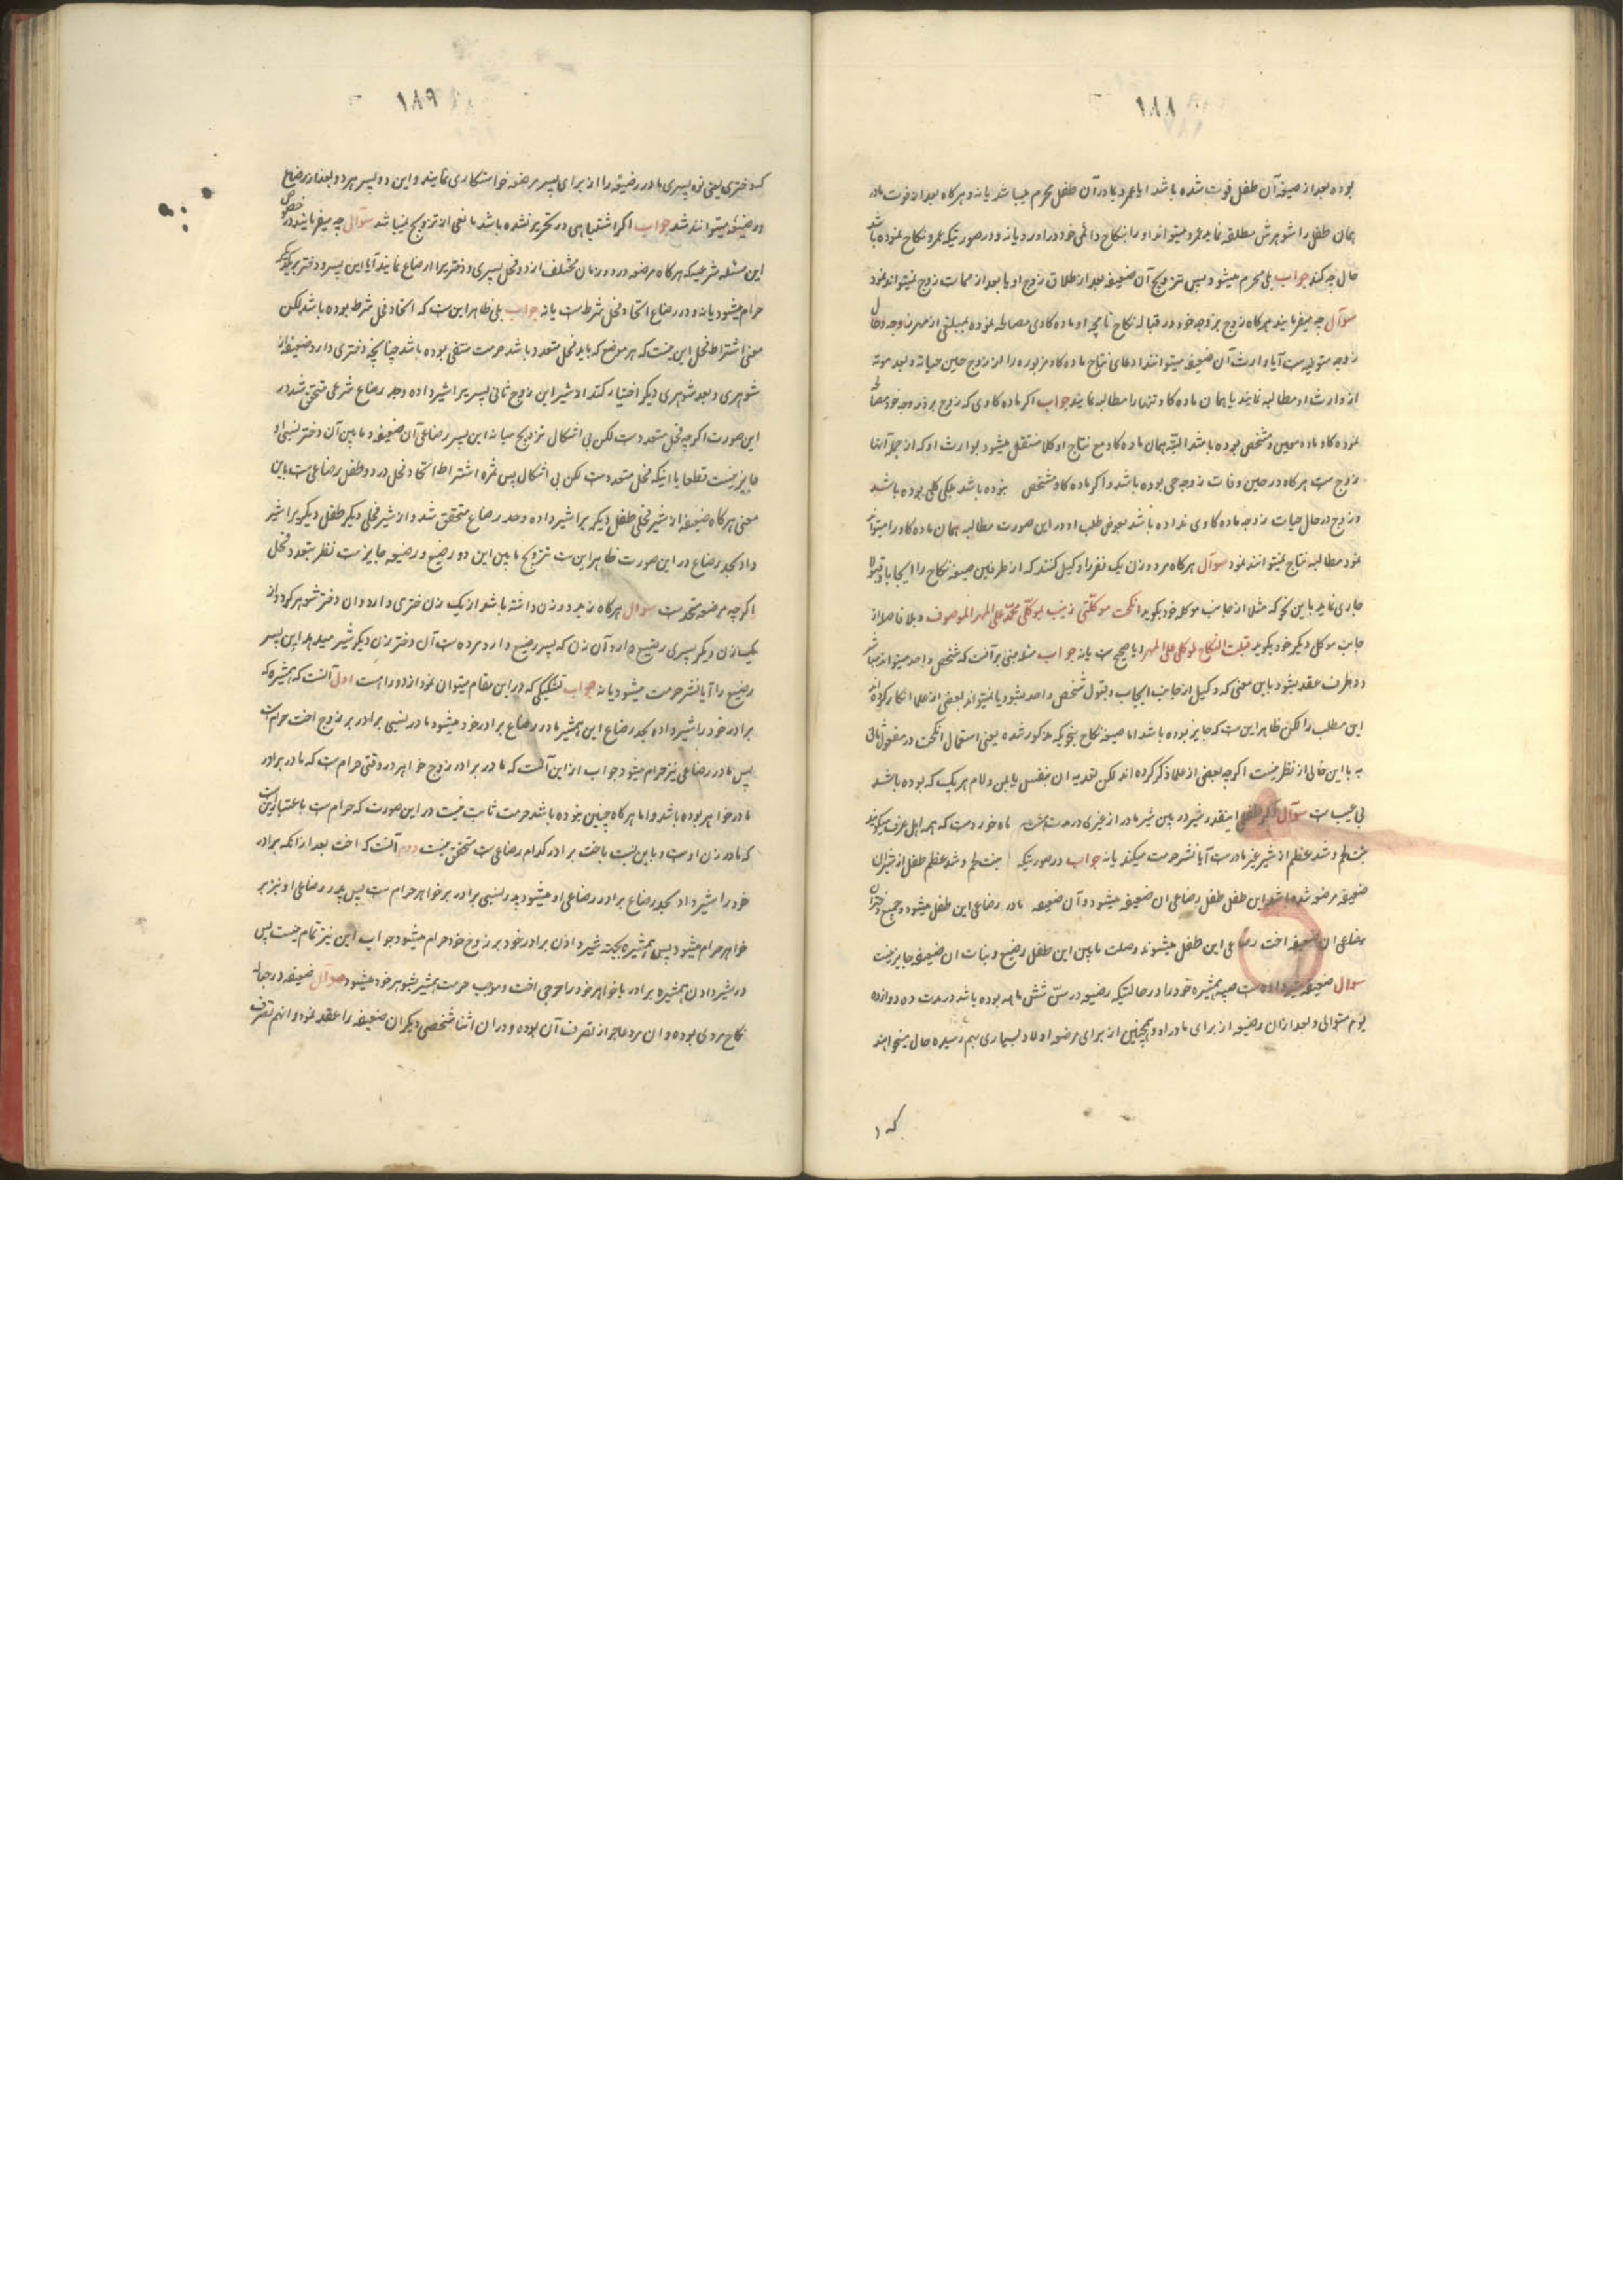 ١٨٨
بوده بعد از صیغه آن طفل فوت شده باشد ایا عمرو بمادر آن طفل محرم میباشد یا نه و هرکاه بعد از فوت مادر
همان طفل را شوهرش مطلقه نماید عمرو میتواند او را بنکاح دائمی خود دراورد یا نه و در صورتیکه عمرو نکاح نموده باشد
حال چه کند جواب بلی محرم میشود پس تزویج آن ضعیفه بعد از طلاق زوج او یا بعد از ممات زوج نمیتواند نمود
سوآل چه میفرمایند هرکاه زوج بزوجه خود در قباله نکاح نامچه او ماده کاوی مصالحه نموده بمبلغی از مهر زوجه و حال
زوجه متوفیه ست آیا وارث آن ضعیفه میتوانند ادعای نتاج ماده کاو مزبوره را از زوج حین حیاته و بعد موته
از وارث او مطالبه نمایند یا همان ماده کاو تنها را مطالبه نمایند جواب اکر ماده کاوی که زوج بر زوجه خود مصالحه
نموده کاو ماده معین و مشخص بوده باشد البته همان ماده کاو مع نتاج او کلا منتقل میشود بوارث او که از جمله آنها
زوج ست هرکاه در حین وفات زوجه حی بوده باشد و اکر ماده کاو مشخص نبوده باشد بلکی کلی بوده باشد
و زوج در حال حیات زوجه ماده کاوی نداده باشد بعوض طلب او در این صورت مطالبه همان ماده کاو را میتواند
نمود مطالبه نتاج نمیتوانند نمود سوآل هرکاه مرد و زن یک نفر را وکیل کنند که از طرفین صیغه نکاح را ایجابا و قبولا
جاری نماید باین نحو که مثلا از جانب موکله خود بکوید انکحت موکلتی زینب لموکلی محمد علی المهر الموصوف و بلا فاصله از
جانب موکل دیکر خود بکوید قبلت النکاح لموکلی علی المهر ایا صحیح ست یا نه جواب مسئله مبنی بر آنست که شخص واحد میتواند مباشر
دو طرف عقد بشود باین معنی که وکیل از جانب ایجاب و قبول شخص واحد بشود یا نمیتواند بعضی از علما انکار کرده اند
این مطلب را لکن ظاهر این ست که جایز بوده باشد اما صیغه نکاح بنحویکه مذکور شده یعنی استعمال انکحت در مفعول ثانی
به با این خالی از نظر نیست اکرچه بعضی از علما ذکر کرده اند لکن تعدیه ان بنفس یا بمن و لام هر یک که بوده باشد
بی عیب ست سوآل اکر طفلی اینقدر شیر در بین شیر مادر از غیری در مدت هشت ماه خورد ست که همه اهل عرف میکویند
نبت لحم و شد عظم از شیر غیر مادرست آیا نشر حرمت میکند یا نه جواب در صورتیکه نبت لحم و شد عظم طفل از شیر ان
ضعیفه مرضعه شده باشد این طفل طفل رضاعی ان ضعیفه میشود و آن ضعیفه مادر رضاعی این طفل میشود و جمیع دختران
رضاعی ان ضعیفه اخت رضاعی این طفل میشوند وصلت مابین این طفل رضیع و بنات ان ضعیفه جایز نیست
سوال ضعیفه شیر داده ست صبیه همشیره خود را در حالتیکه رضیعه در سن شش ماهه بوده باشد در مدت ده دوازده
یوم متوالی و بعد از ان رضیعه از برای مادر او و همچنین از برای مرضعه اولاد بسیاری بهم رسیده حال میخواهند
که د
١٨٩
که دختری یعنی نوه پسری مادر رضیعه را از برای پسر مرضعه خواستکاری نمایند و این دو پسر هر دو بعد از رضاع
ان رضیعه میتوانند شد جواب اکر اشتباهی در تحریر نشده باشد مانعی از تزویج نمیباشد سوآل چه میفرمایند در خصوص
این مسئله شرعیه که هرکاه مرضعه در دو زمان مختلف از دو فحل پسری و دختریرا ارضاع نمایند آیا این پسر و دختر بر یکدیکر
حرام میشود یا نه و در رضاع اتحاد فحل شرط ست یا نه جواب بلی ظاهر این ست که اتحاد فحل شرط بوده باشد لکن
معنی اشتراط فحل این نیست که هر موضع که باید فحل متعدد باشد حرمت منتفی بوده باشد چنانچه دختری دارد ضعیفه از
شوهری و بعد شوهری دیکر اختیار کند از شیر این زوج ثانی پسریرا شیر داده و حد رضاع شرعی متحقق شد در
این صورت اکرچه فحل متعدد ست لکن بی اشکال تزویج میانه این پسر رضاعی آن ضعیفه و مابین آن دختر نسبی او
جایز نیست قطعا با اینکه فحل متعدد ست لکن بی اشکال پس ثمره اشتراط اتحاد فحل در دو طفل رضاعی ست باین
معنی هرکاه ضعیفه از شیر فحلی طفل دیکریرا شیر داده و حد رضاع متحقق شد و از شیر فحلی دیکر طفل دیکریرا شیر
داد بحد رضاع در این صورت ظاهر این ست تزویج مابین این دو رضیع و رضیعه جایز ست نظر بتعدد فحل
اکرچه مرضعه متحد ست سوال هرکاه زید دو زن داشته باشد از یک زن دختری دارد و ان دختر شوهر کرده و از
یک زن دیکر پسری رضیع دارد آن زن که پسر رضیع دارد مرده ست آن دختر زن دیکر شیر میدهد این پسر
رضیع را آیا نشر حرمت میشود یا نه جواب تشکیکی که در این مقام میتوان نمود از دو راه ست اول آنست که همشیره که
برادر خود را شیر داده بحد رضاع این همشیر مادر رضاعی برادر خود میشود مادر نسبی برادر بر زوج اخت حرام ست
پس مادر رضاعی نیز حرام میشود جواب از این آنست که مادر برادر زوج خواهر در وقتی حرام ست که مادر برادر
مادر خواهر بوده باشد و اما هرکاه چنین نبوده باشد حرمت ثابت نیست در این صورت که حرام ست باعتبار این ست
که مادر زن اوست و باین نسبت باخت برادر کدام رضاعی ست متحقق نیست دوم آنست که اخت بعد از انکه برادر
خود را شیر داد بحد رضاع برادر رضاعی او میشود پدر نسبی برادر بر خواهر حرام ست پس پدر رضاعی او نیز بر
خواهر حرام میشود پس همشیره بجهته شیر دادن برادر خود بر زوج خود حرام میشود جواب این نیز تمام نیست پس
در شیر دادن همشیره برادر یا خواهر خود را حرجی اخت و موجب حرمت همشیر بشوهر خود نمیشود سوآل ضعیفه در حباله
نکاح مردی بوده و ان مرد عاجز از تصرف آن بوده و در ان اثنا شخصی دیکر ان ضعیفه را عقد نمود و انهم تصرف